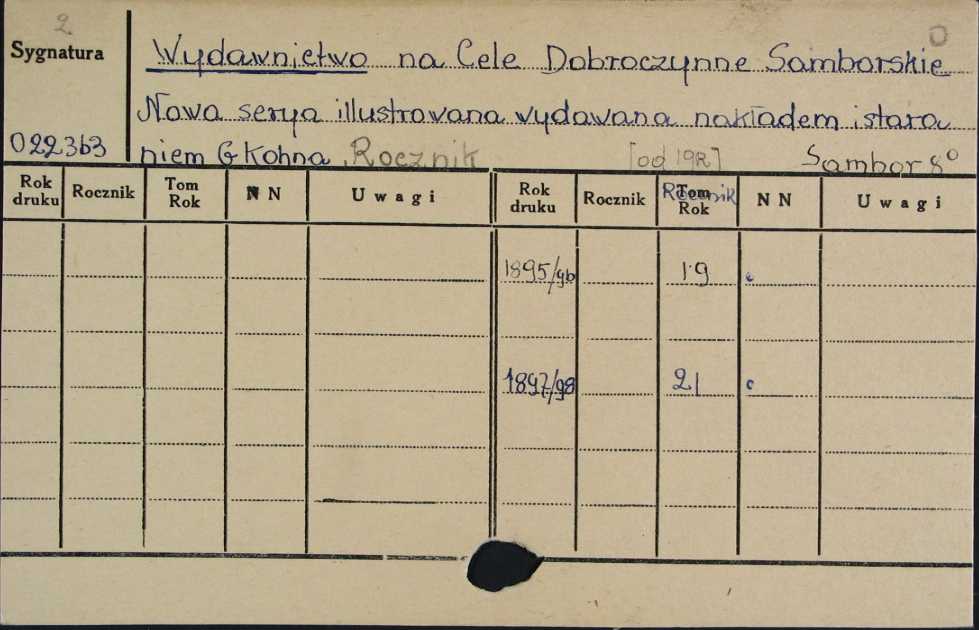 2.
Sygnatura
Wydawnictwo na Cele Dobroczynne Samborskie
Nowa serya illustrowana wydawana nakładem i stara
022363
niem G Kohna, Rocznik [od 19R] Sambor 8°
Rok druku Rocznik Tom Rok NN Uwagi Rok druku Rocznik Rocznik Tom Rok NN Uwagi
1895/96 19 c
1897/98 21 c